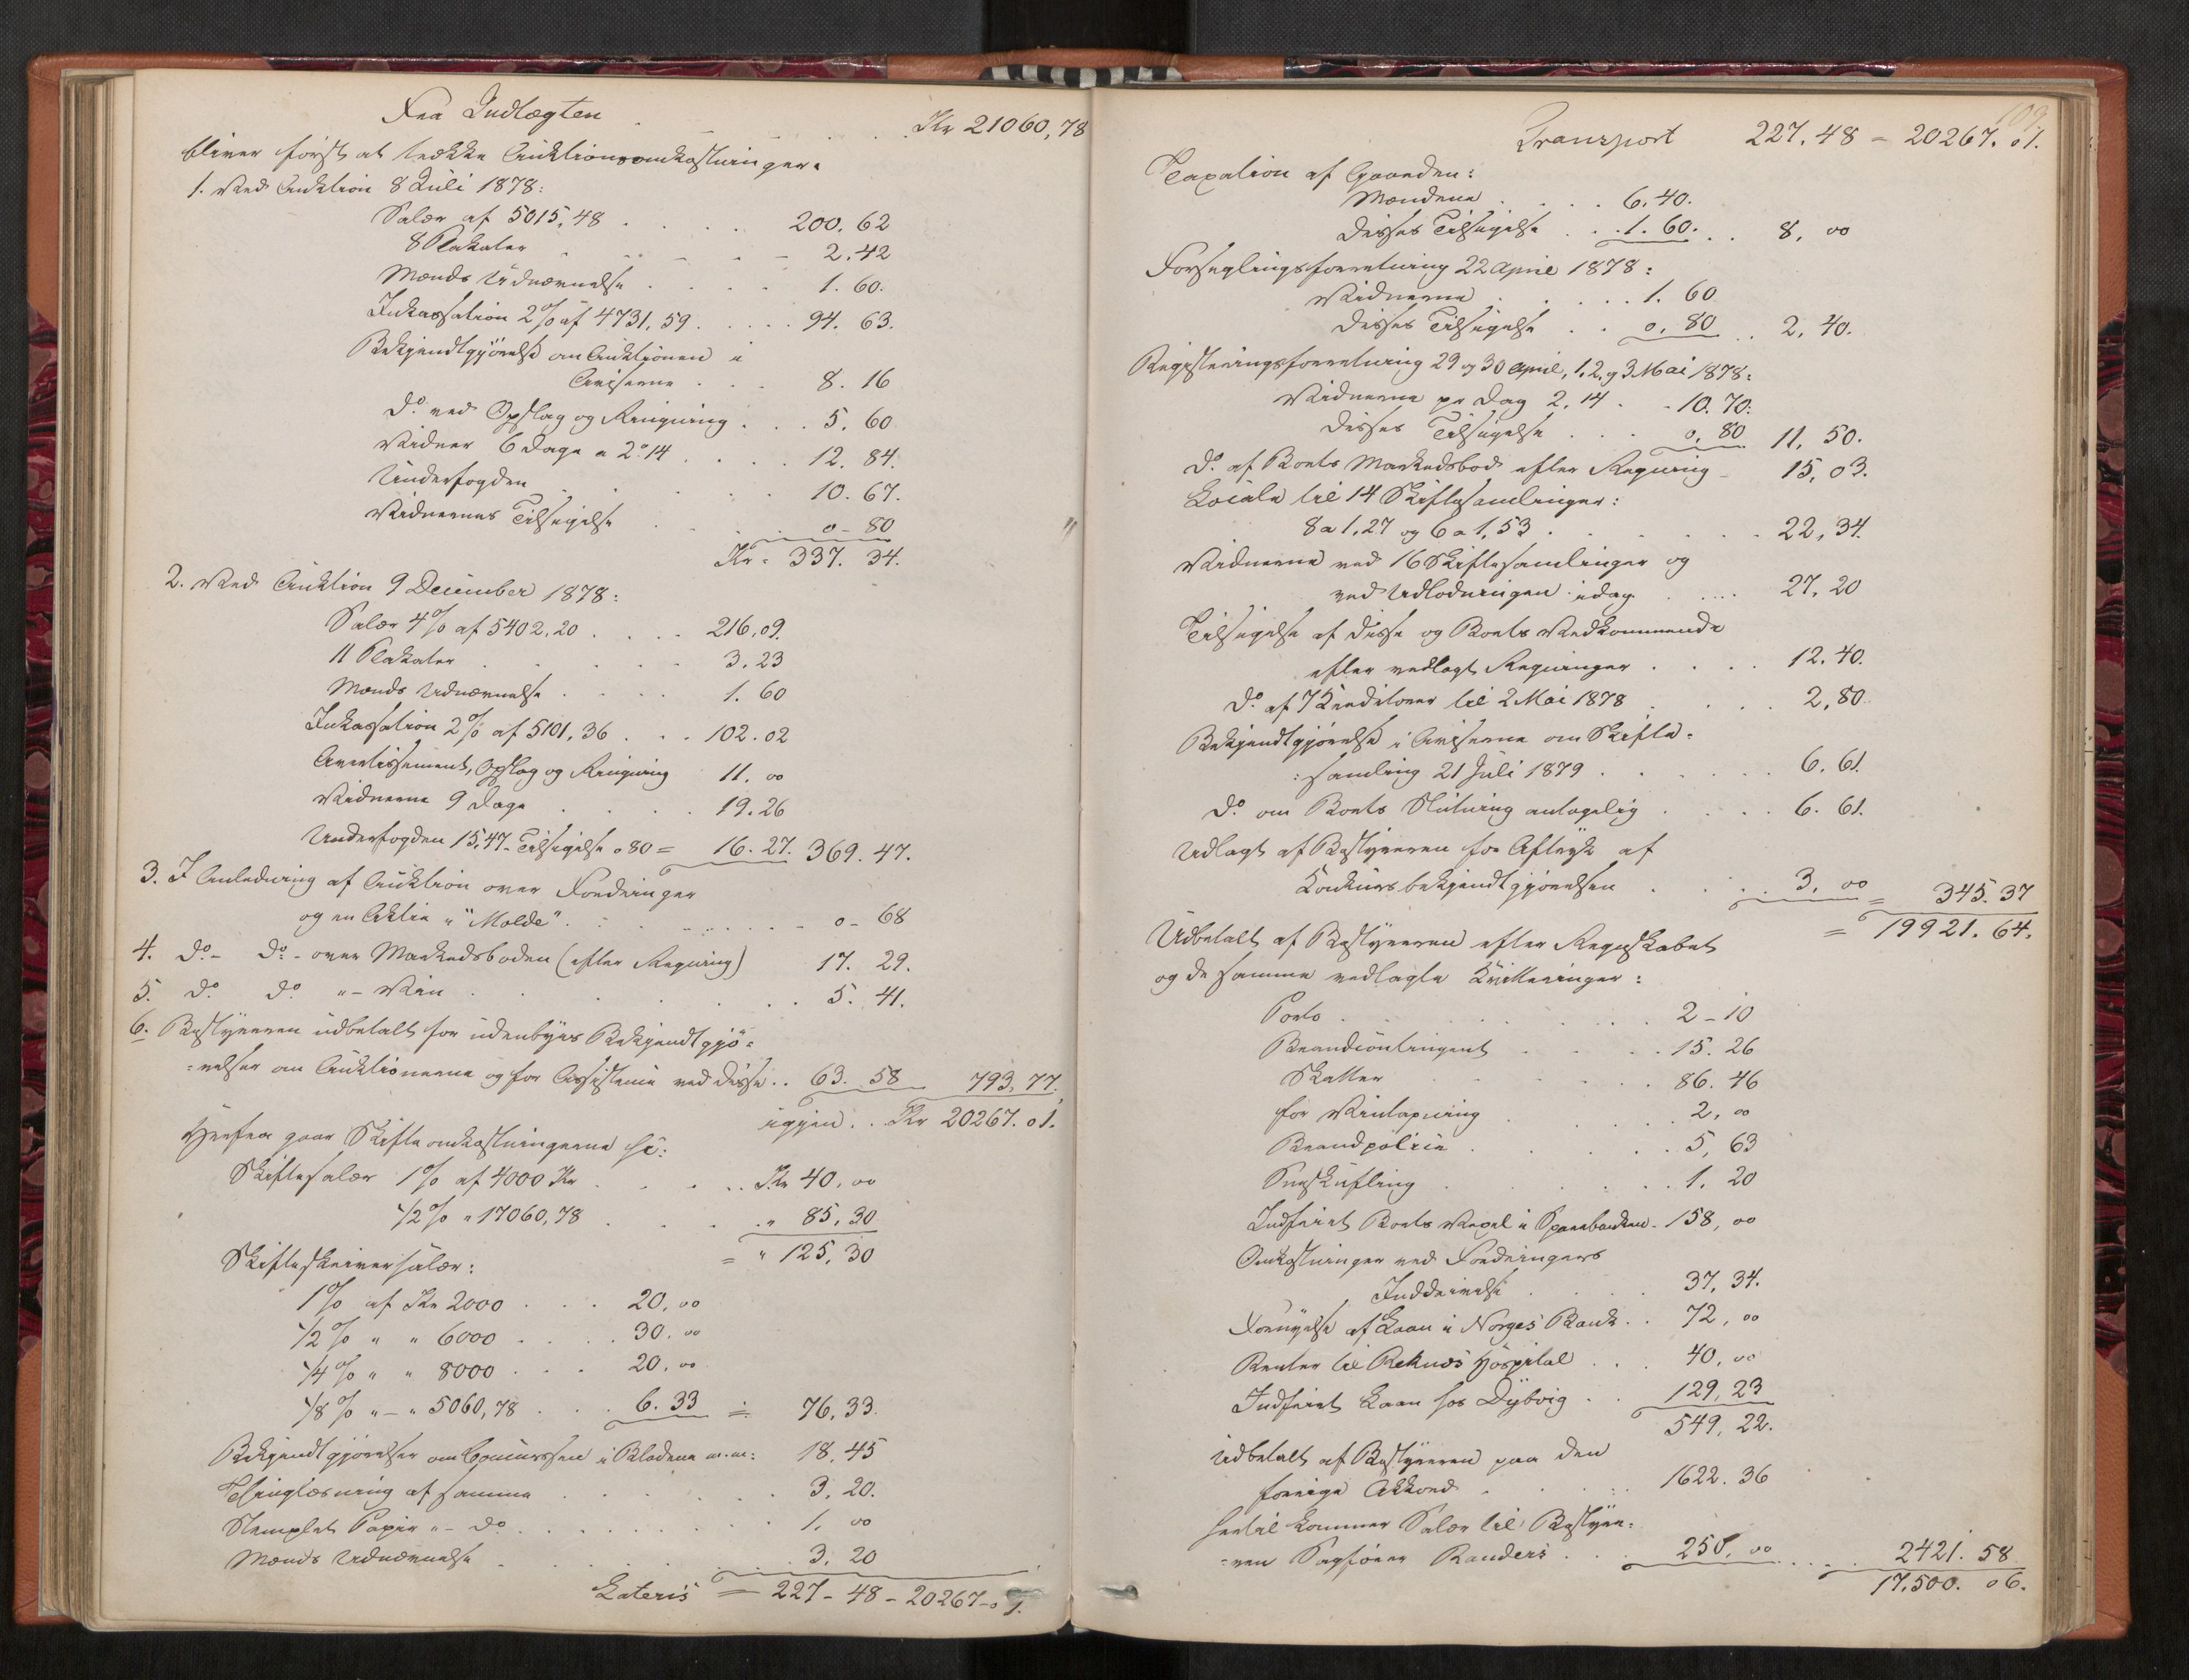 Fra Indtægten . . . . . Kr 21060,78
bliver først at trække Auktionsomkostninger.
1. Ved Auktion 8 Juli 1878:
Salær af 5015,48 . . . . 200. 62
8 Plakater . . . . 2.42
Mænds Udnævnelse . . . . 1. 60.
Inkassation 2% af 4731,59 . . . . 94. 63.
Bekjendtgjørelse om Auktionen i
Aviserne . . . 8. 16
Do. ved Opslag og Ringning . . . 5. 60
Vidner 6 Dage a 2.14 . . . . 12. 84.
Underfogden . . . . 10. 67.
Vidnernes Tilsigelse . . . . 0-80
Kr. 337. 34.
2. Ved Auktion 9 December 1878:
Salær 4% af 5402,20 . . . . 216,09.
11 Plakater . . . . 3.23
Mænds Udnævnelse . . . . 1. 60
Inkassation 2% af 5101,36 . . . 102.02
Avertissement, Opslag og Ringning 11. 00
Vidnerne 9 Dage . . . . 19.26
Underfogden 15,47- Tilsigelse 0 80 = 16. 27. 369. 47.
3. I Anledning af Auktion over Fordringer
og en Aktie i "Molde" . . . . 0- 68
4. Do- Do- over Markedsboden (efter Regning) 17. 29.
5. Do. Do "- Vin . . . . 5. 41.
6. Bestyreren udbetalt for udenbyes Bekjendtgjø-
-relser om Auktionerne og for Assistence ved disse . . 63. 58 793,77.
igjen . . Kr 20267. 01.
Herfra gaar Skifteomkostningerne så:
Skiftesalær 1% af 4000 Kr . . . . Kr 40, 00
1/2% " 17060,78 . . . . " 85,30
= " 125,30
Skifteskriversalær:
1% af Kr 2000 . . . 20,00
1/2% " " 6000 . . . 30.00
1/4% " " 8000 . . . 20.00
1/8% "-" 5060,78 . . . 6.33 = 76,33.
Bekjendtgjørelser om Concurssen i Bladene m.m: 18,45
Thinglæsning af samme . . . . 3.20.
Stemplet Papir "- Do . . . . 1, 00
Mænds Udnævnelse . . . . 3.20
Lateris = 227-48-20267-01.
109
Transport 227.48 - 20267.01.
Taxation af Gaarden:
Mændene . . . . 6.40.
Disses Tilsigelse . . . 1. 60. . . 8, 00
Forseglingsforretning 22 April 1878:
Vidnerne . . . . 1. 60
Disses Tilsigelse . . 0, 80 . . 2, 40.
Registreringsforretning 29 og 30 April, 1, 2, og 3 Mai 1878:
Vidnerne pr Dag 2,14 . . 10.70:
Disses Tilsigelse . . . 0, 80 11, 50.
Do. af Boets Markedsbod efter Regning - 15,03.
Locale til 14 Skiftesamlinger:
8 a 1,27 og 6 a 1,53 . . . . 22,34.
Vidnerne ved 16 Skiftesamlinger og
ved Udlodningen idag . . . . 27,20
Tilsigelse af disse og Boets Vedkommende
efter vedlagt Regninger . . . . 12.40.
Do. af 7 Kreditorer til 2 Mai 1878 . . . . 2,80
Bekjendtgjørelse i Aviserne om Skifte-
-samling 21 Juli 1879 . . . . 6,61.
Do. om Boets Slutning antagelig . . . . 6. 61.
Udlagt af Bestyreren for Aftryk af
Konkursbekjendtgjørelsen . . . . 3, 00 = 345.37
= 19921.64.
Udbetalt af Bestyreren efter Regnskabet
og de samme vedlagte Kvitteringer:
Porto . . . . 2-10
Brandcontingent . . . . 15.26
Skatter . . . . 86.46
for Vintapning . . . . 2,00
Brandpolice . . . . 5,63
Sneskufling . . . . 1. 20
Indfriet Boets Vexel i Sparebanken - 158, 00
Omkostninger ved Fordringers
Inddrivelse . . . . 37,34.
Fornyelse af Laan i Norges Bank . . 72, 00
Renter til Reknæs Hospital . . . 40,00
Indfriet Laan hos Dybvig . . 129,23
549,22.
Udbetalt af Bestyreren paa den
forrige Akkord . . . . 1622.36
hertil kommer Salær til Bestyre-
-ren Sagfører Randers . . . 250,00 . . . . 2421.58
17.500.06.